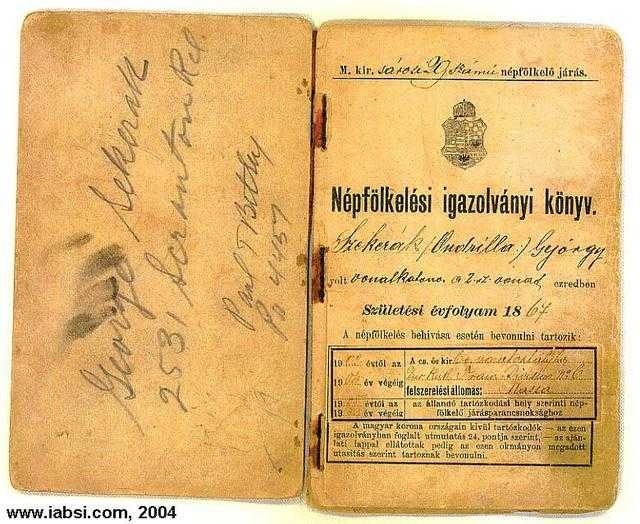 George Sekerak
2531 Scranton Rd.
Paul Betby
Po 4457
M. kir. sárosi szamú népfölkelő járás.
Népfölkelési igazolványi könyv.
Szekerák (Ondzilla) György
volt vonatkatona a 2. sz. ezredben
Születési évfolyam 1867
A népfölkelés behivása esetén bevonulni tartozik:
19 évtől az A cs. és kir.
19 év végéig
felszerelési állomás: Kassa
19 évtől az az állandó tartózkodási hely szerinti nép-
19 év végéig fölkelő járásparancsnoksághoz
A magyar korona országain kivül tartózkodók — az ezen
igazolványban foglalt utmutatás 24. pontja szerint, — az aján-
lati lappal ellátottak pedig az ezen okmányon megadott
utasitás szerint tartoznak bevonulni.
www.iabsi.com, 2004